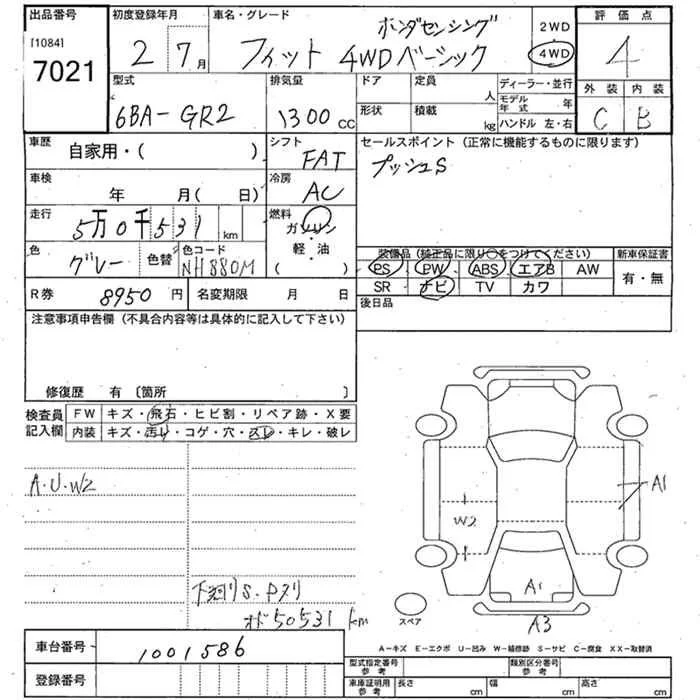 出品番号
[1084]
7021
初度登録年月
2 7月
車名・グレード
ホンダセンシング
フィット 4WDベーシック
2WD
4WD
評価点
4
外装 内装
C B
型式
6BA-GR2
排気量
1300 cc
ドア 定員 人
形状 積載 kg
ディーラー・並行
モデル年式 年
ハンドル 左・右
車歴
自家用・( )
シフト
FAT
セールスポイント (正常に機能するものに限ります)
プッシュS
車検
年 月( 日)
冷房
AC
走行
5万0千531 km
燃料
ガソリン
軽・油
( )
色
グレー
色替
色コード
NH880M
装備品 (純正品に限り○をつけてください)
PS PW ABS エアB AW
SR ナビ TV カワ
新車保証書
有・無
R券 8950 円
名変期限 月 日
後日品
注意事項申告欄 (不具合内容等は具体的に記入して下さい)
修復歴 有 〔箇所 〕
検査員記入欄
FW キズ・飛石・ヒビ割・リペア跡・X要
内装 キズ・汚れ・コゲ・穴・スレ・キレ・破レ
A・U・W2
A1
W2
A1
下廻りS・Pスリ
オド50531km
スペア
A3
車台番号 1001586
登録番号
A−キズ E−エクボ U−凹み W−補修跡 S−サビ C−腐食 XX−取替済
型式指定番号 参考
類別区分番号 参考
車庫証明用 参考
長さ cm 幅 cm 高さ cm